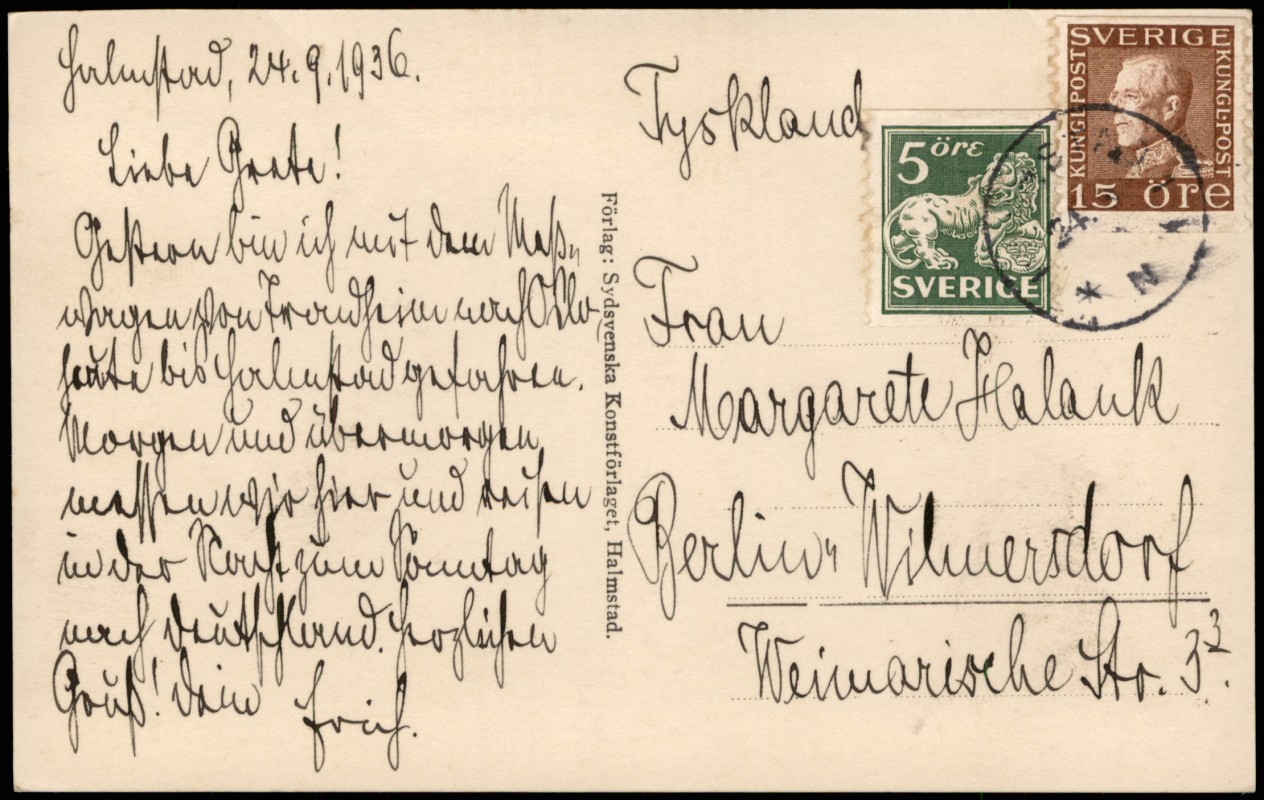 Halmstad, 24.9.1936.
Liebe Grete!
Gestern bin ich mit dem Meß-
wagen von Trondheim nach Oslo
heute bis Halmstad gefahren.
Morgen und übermorgen
messen wir hier und reisen
in der Nacht zum Sonntag
nach Deutschland. Herzlichen
Gruß! Dein Erich.
Förlag: Sydsvenska Konstförlaget, Halmstad.
Tyskland
SVERIGE
KUNGL. POST
KUNGL. POST
15 öre
5 öre
SVERIGE
24.
* N
Frau
Margarete Halank
Berlin-Wilmersdorf
Weimarische Str. 3²